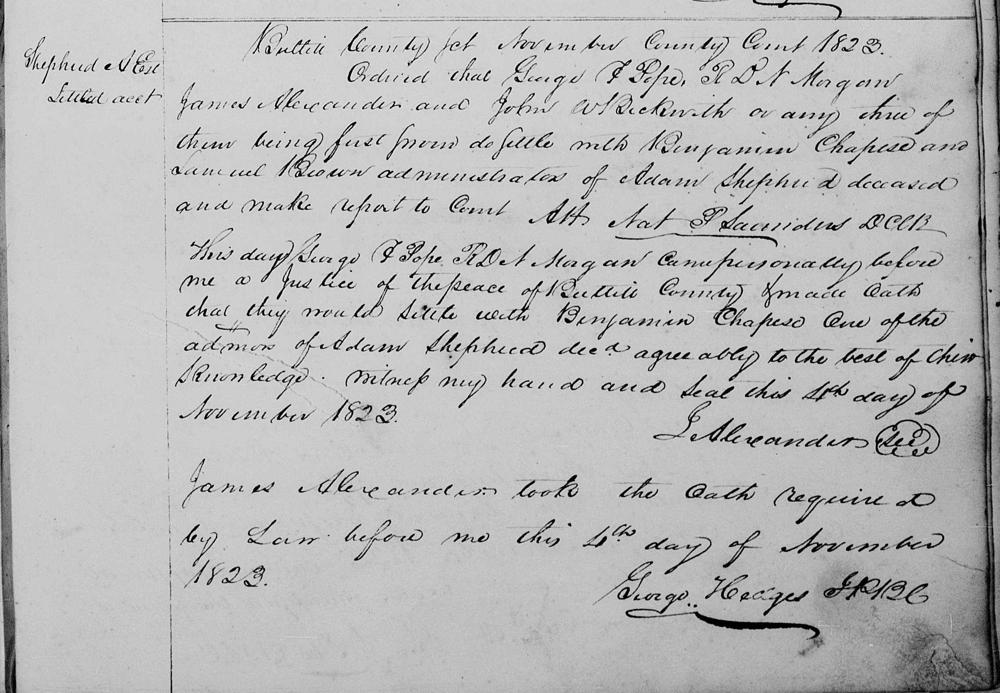 Shepherd A Est
Settled acct
Bullitt County Sct November County Court 1823.
Ordered that George F Pope, R D N Morgan
James Alexander and John W Beckwith or any three of
them being first sworn do settle with Benjamin Chapese and
Samuel Brown administrators of Adam Shepherd deceased
and make report to Court Att Nat P Saunders DCCB
This day George F Pope R D N Morgan came personally before
me a Justice of the peace of Bullitt County & made Oath
that they would settle with Benjamin Chapese One of the
admors of Adam Shepherd decd agreeably to the best of their
Knowledge. Witness my hand and seal this 4th day of
November 1823.
J Alexander
James Alexander took the Oath required
by Law before me this 4th day of November
1823.
George Hedges JPBC